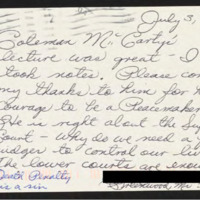 July 3,
Coleman McCarty's
lecture was great - I
took notes. Please con
my thanks to him for h
ourage to be a Peacemaker
He is right about the Su
ourt - why do we need
udges to control our li
the lower courts are eno
Death Penalty
is a sin
Greenwood